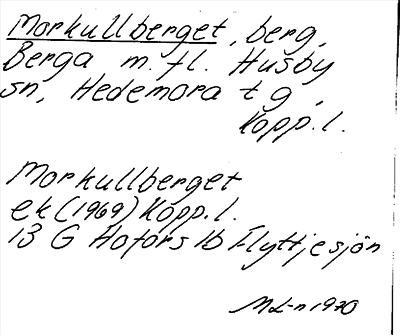 Morkullberget, berg,
Berga m.fl. Husby
sn, Hedemora tg,
Kopp.l.
Morkullberget
ek (1969) Kopp.l.
13 G Hofors 1b Flyttjesjön
ML-n 1970